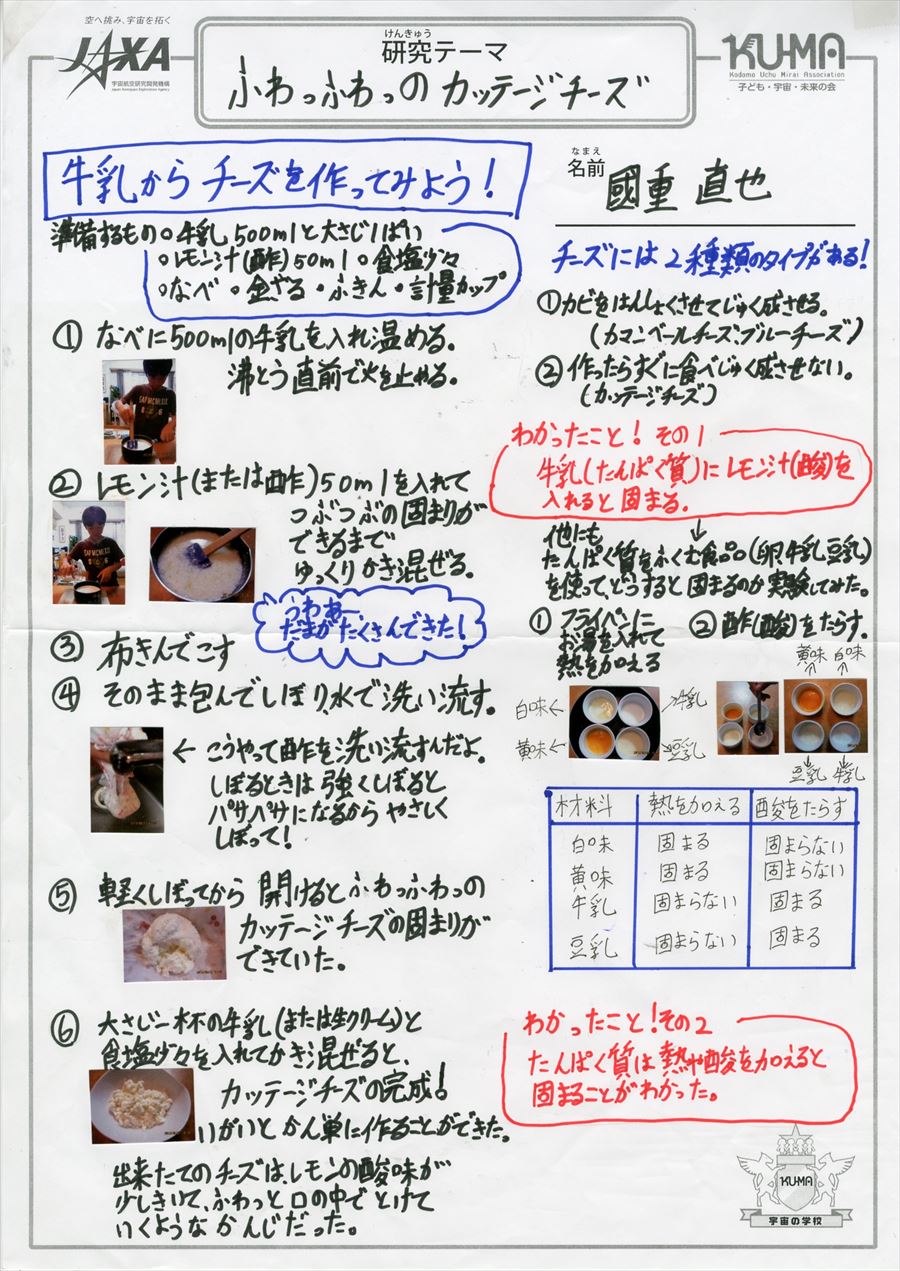 空へ挑み、宇宙を拓く
JAXA
宇宙航空研究開発機構
Japan Aerospace Exploration Agency
けんきゅう
研究テーマ
ふわっふわっの カッテージチーズ
KU-MA
Kodomo Uchu Mirai Association
子ども・宇宙・未来の会
牛乳からチーズを作ってみよう!
なまえ
名前
國重 直也
準備するもの○牛乳500mlと大さじ1ぱい
○レモン汁(酢)50ml○食塩少々
○なべ○金ざる・ふきん・計量カップ
① なべに500mlの牛乳を入れ温める。
沸とう直前で火を止める。
② レモン汁(または酢)50mlを入れて
つぶつぶの固まりが
できるまで
ゆっくりかき混ぜる。
うわぁー
だまがたくさんできた!
③ 布きんでこす
④ そのまま包んでしぼり、水で洗い流す。
← こうやって酢を洗い流すんだよ。
しぼるときは強くしぼると
パサパサになるからやさしく
しぼって!
⑤ 軽くしぼってから開けるとふわっふわっの
カッテージチーズの固まりが
できていた。
⑥ 大さじ一杯の牛乳(または生クリーム)と
食塩少々を入れてかき混ぜると、
カッテージチーズの完成!
いがいとかん単に作ることができた。
出来たてのチーズは、レモンの酸味が
少しきいて、ふわっと口の中でとけて
いくようなかんじだった。
チーズには2種類のタイプがある!
①カビをはんしょくさせてじゅく成させる。
(カマンベールチーズ、ブルーチーズ)
②作ったらすぐに食べじゅく成させない。
(カッテージチーズ)
わかったこと!その1
牛乳(たんぱく質)にレモン汁(酸)を
入れると固まる。
↓
他にも
たんぱく質をふくむ食品(卵、牛乳、豆乳)
を使って、どうすると固まるのか実験してみた。
① フライパンに
お湯を入れて
熱を加える
② 酢(酸)をたらす。
黄味 白味
白味← →牛乳
黄味← →豆乳
豆乳 牛乳
材料 熱を加える 酸をたらす
白味 固まる 固まらない
黄味 固まる 固まらない
牛乳 固まらない 固まる
豆乳 固まらない 固まる
わかったこと!その2
たんぱく質は熱や酸を加えると
固まることがわかった。
KU-MA
宇宙の学校